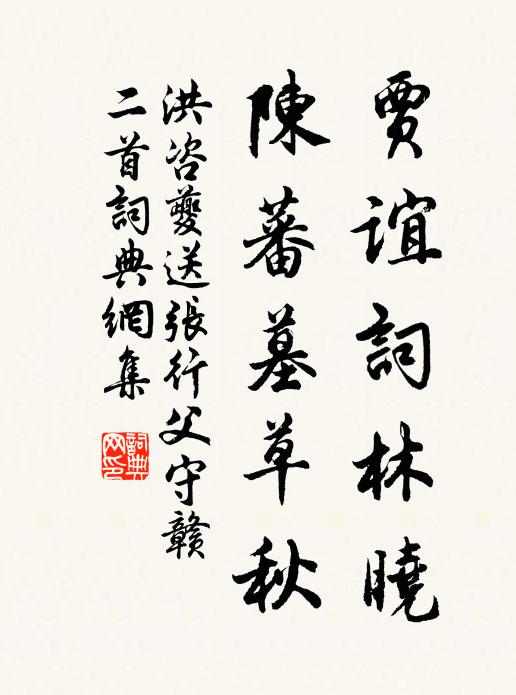 賈誼詞林曉
陳蕃墓草秋
洪咨夔送張行父守贛
二首詞典網集
詞典
网印